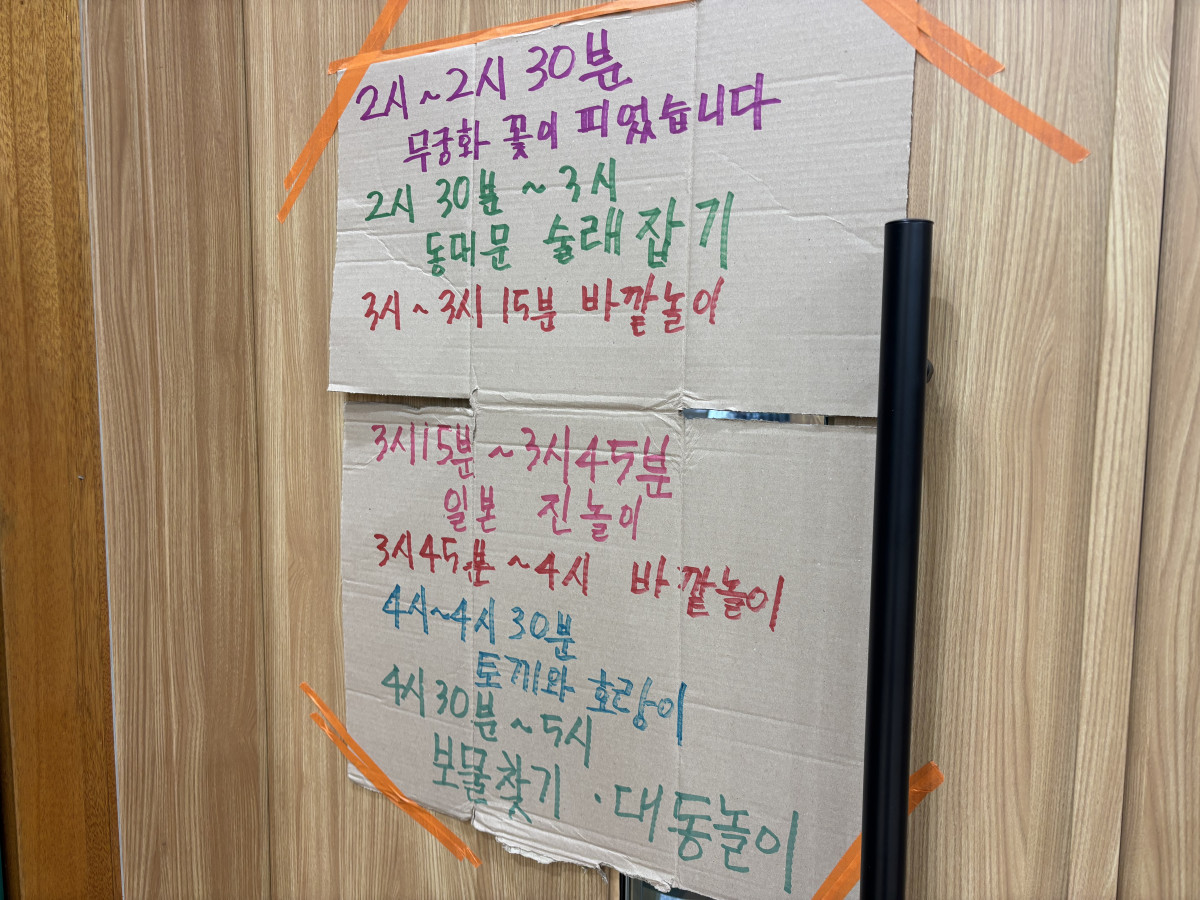 2시~2시 30분
무궁화 꽃이 피었습니다
2시 30분 ~ 3시
동대문 술래잡기
3시~3시 15분 바깥놀이
3시15분 ~3시45분
일본 진놀이
3시45분 ~4시 바깥놀이
4시~4시 30분
토끼와 호랑이
4시30분~5시
보물찾기 · 대동놀이